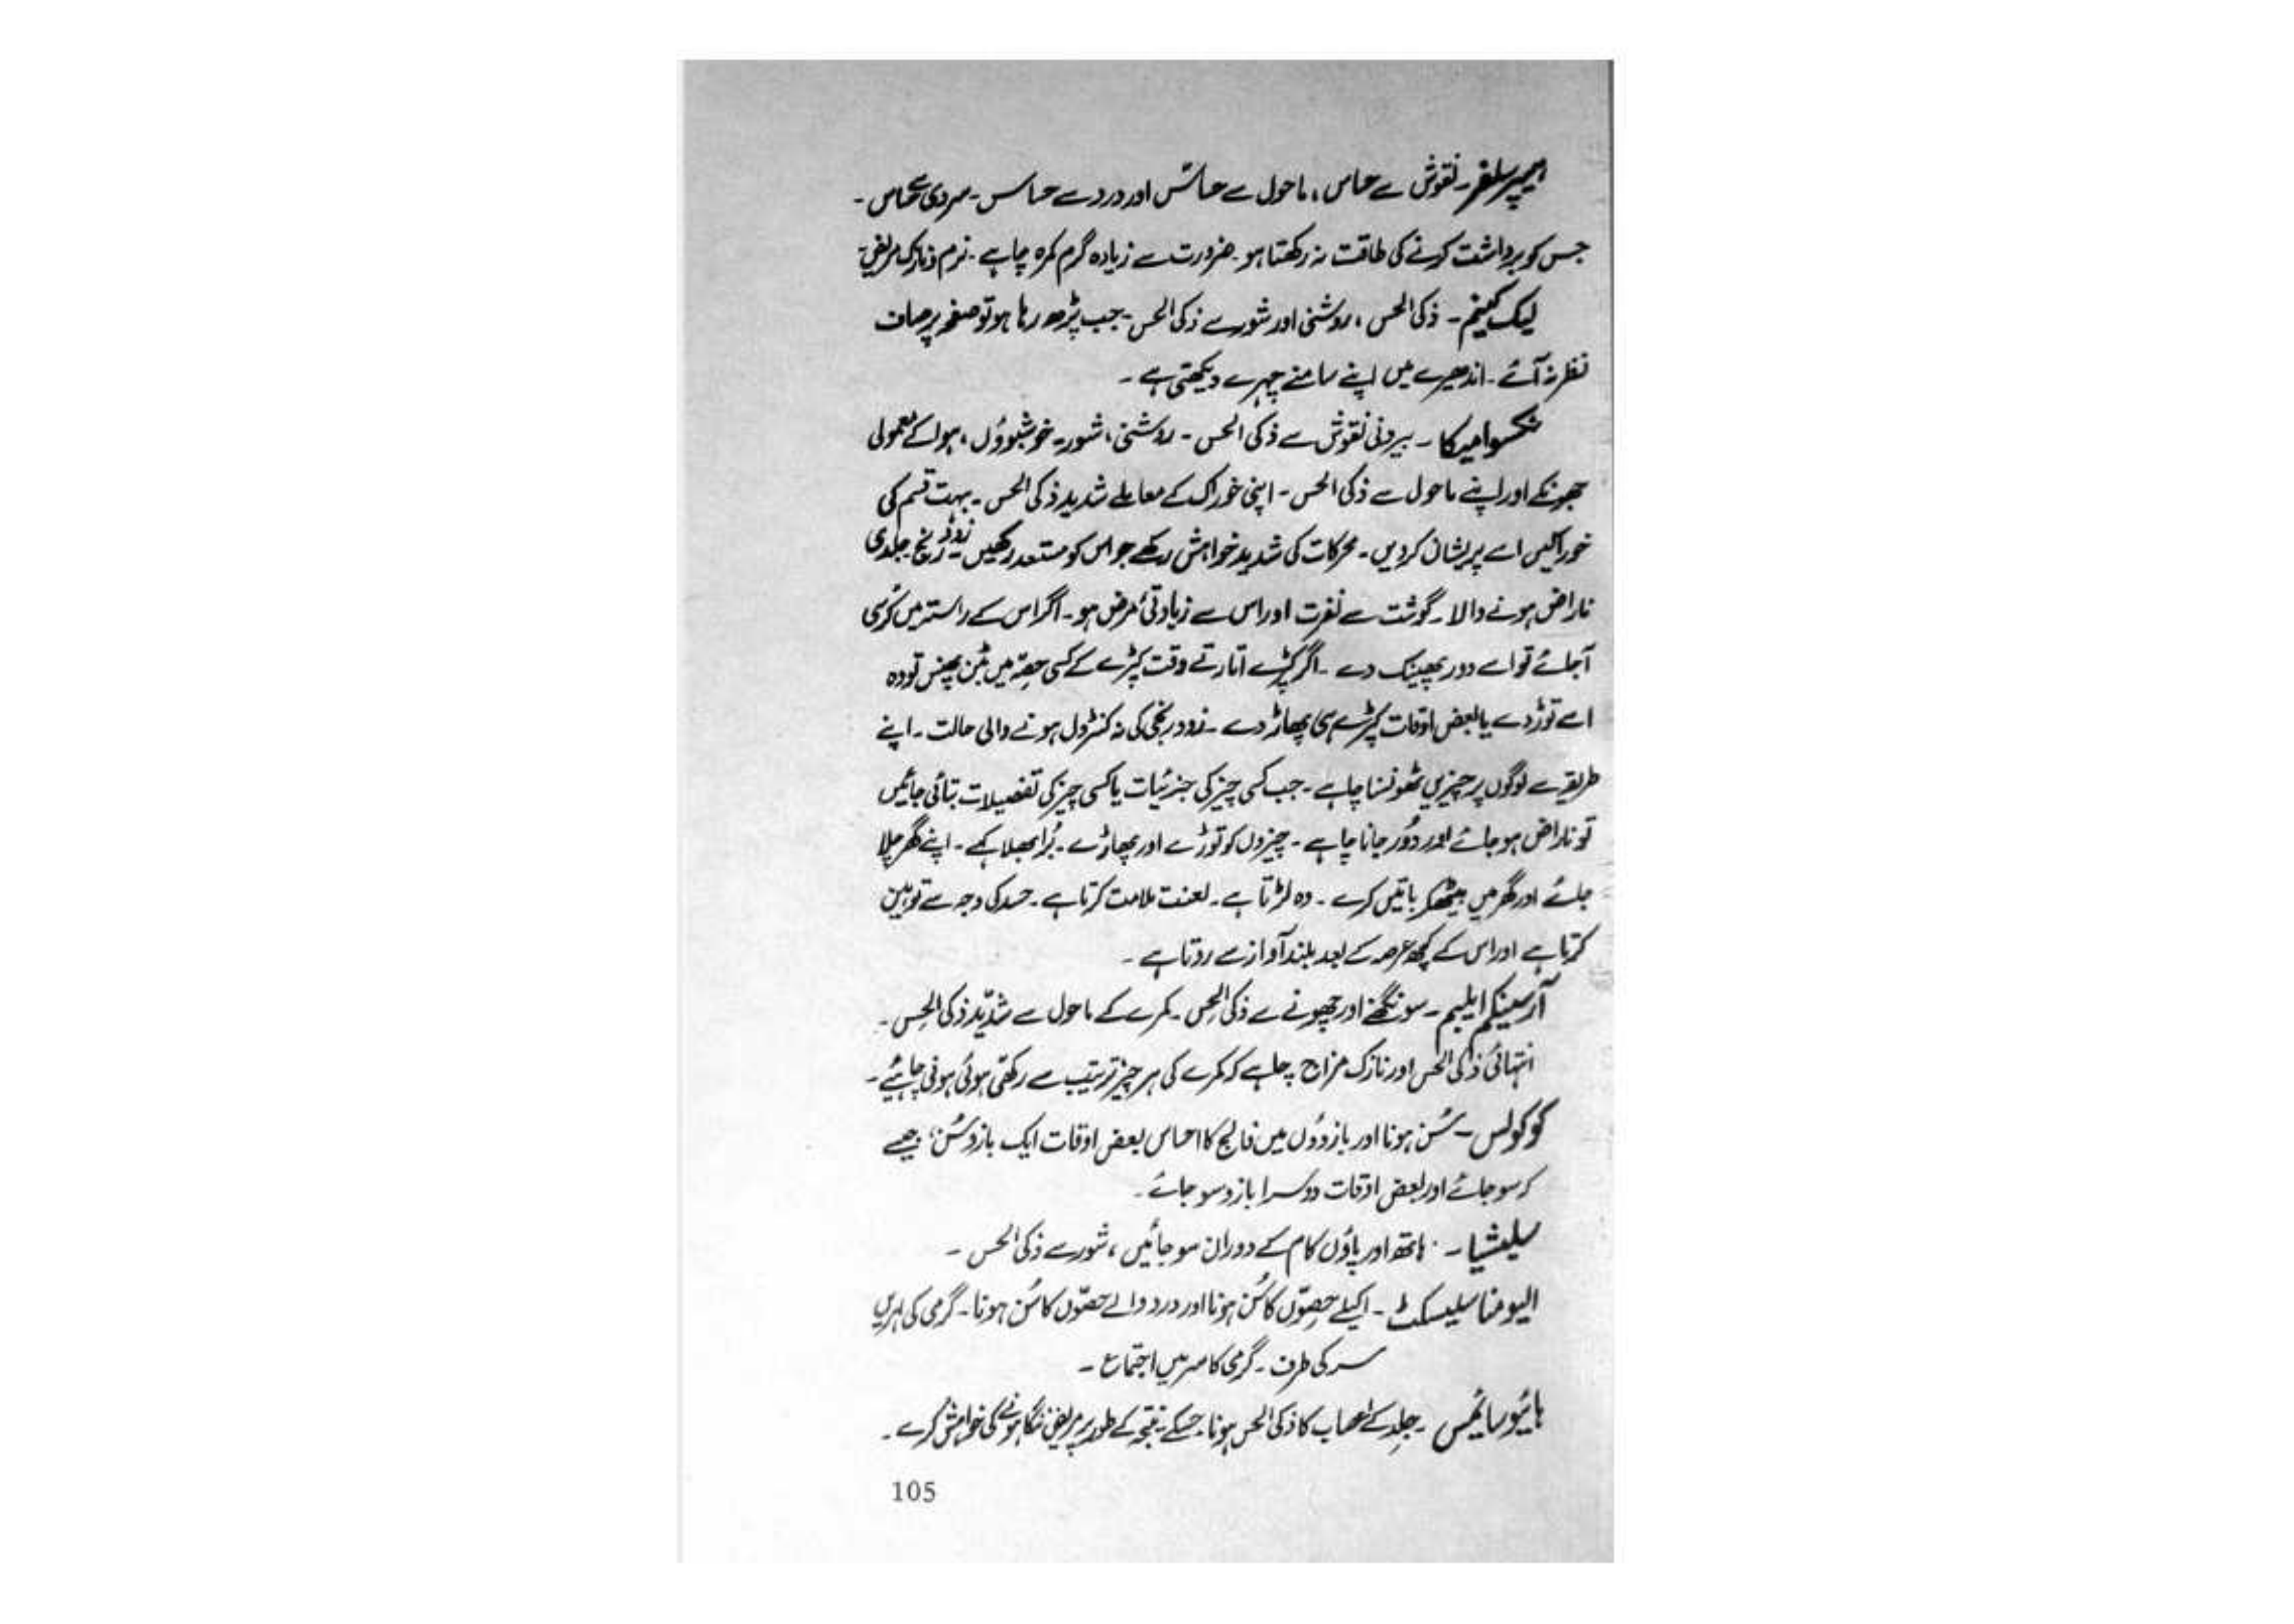 ہیپر سلفر۔ نقوش سے حساس، ماحول سے حساس اور درد سے حساس۔ سردی سے حساس۔
جس کو برداشت کرنے کی طاقت نہ رکھتا ہو۔ ضرورت سے زیادہ گرم کمرہ چاہے۔ نرم و نازک مریض۔
لیک کینم۔ ذکی الحس، روشنی اور شور سے ذکی الحس۔ جب پڑھ رہا ہو تو صفحہ پر صاف
نظر نہ آئے۔ اندھیرے میں اپنے سامنے چہرے دیکھتی ہے۔
نکسوامیکا۔ بیرونی نقوش سے ذکی الحس۔ روشنی، شور۔ خوشبوؤں، ہوا کے معمولی
جھونکے اور اپنے ماحول سے ذکی الحس۔ اپنی خوراک کے معاملے شدید ذکی الحس۔ بہت قسم کی
خوراکیں اسے پریشان کردیں۔ محرکات کی شدید خواہش رکھے جو اس کو مستعد رکھیں۔ زود رنج جلدی
ناراض ہونے والا۔ گوشت سے نفرت اور اس سے زیادتیٔ مرض ہو۔ اگر اس کے راستہ میں کُرسی
آجائے تو اسے دور پھینک دے۔ اگر کپڑے اتارتے وقت کپڑے کے کسی حصّہ میں بٹن پھنس تو وہ
اسے توڑ دے یا بعض اوقات کپڑے ہی پھاڑ دے۔ زود رنجی کی نہ کنٹرول ہونے والی حالت۔ اپنے
طریقہ سے لوگوں پر چیزیں ٹھونسنا چاہے۔ جب کسی چیز کی جزئیات یا کسی چیز کی تفصیلات بتائی جائیں
تو ناراض ہو جائے اور دُور جانا چاہے۔ چیزوں کو توڑے اور پھاڑے۔ بُرا بھلا کہے۔ اپنے گھر چلا
جائے اور گھر میں بیٹھکر باتیں کرے۔ وہ لڑتا ہے۔ لعنت ملامت کرتا ہے۔ حسد کی وجہ سے توہین
کرتا ہے اور اس کے کچھ عرصہ کے بعد بلند آواز سے روتا ہے۔
آرسینکم ایلبم۔ سونگھنے اور چھونے سے ذکی الحِس۔ کمرے کے ماحول سے شدید ذکی الحِس۔
انتہائی ذکی الحس اور نازک مزاج چاہے کہ کمرے کی ہر چیز ترتیب سے رکھی ہوئی ہونی چاہیئے۔
کوکولس۔ سُن ہونا اور بازوؤں میں فالج کا احساس بعض اوقات ایک بازو سُن، جیسے
کہ سو جائے اور بعض اوقات دوسرا بازو سو جائے۔
سلیشیا۔ ہاتھ اور پاؤں کام کے دوران سو جائیں، شور سے ذکی الحس۔
الیومنا سلیسکٹ۔ اکیلے حصّوں کا سُن ہونا اور درد والے حصّوں کا سُن ہونا۔ گرمی کی لہریں
سر کی طرف۔ گرمی کا سر میں اجتماع۔
ہائیوسائمس۔ جلد کے اعصاب کا ذکی الحس ہونا جسکے نتیجہ کے طور پر مریض ننگا ہونے کی خواہش کرے۔
105